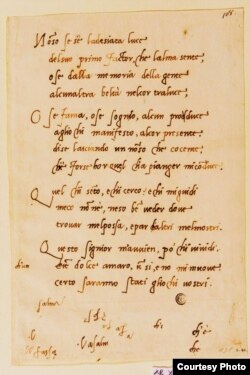 Non so se s'è la desiata luce
del suo primo factor, che l'alma sente,
o se dalla memoria della gente
alcun'altra beltà nel cor traluce
O se fama, o se sognio, alcun prod'duce
agli ochi manifesto, al cor presente
di se lasciando un non so che cocente
ch'è forse hor quel ch'a pianger mi co'duce
Quel ch'i se'to, e ch'i cerco: e chi mi guidi
meco no' n'è, nè so be' veder dove
trovar mel possa, e par c'altri mel mostri
Questo signior m'avvien, po' ch'i' vi vidi.
c'un dolce amaro, u' sì, e no mi muove
certo saranno stati gli ochi vostri.
Courtesy Photo